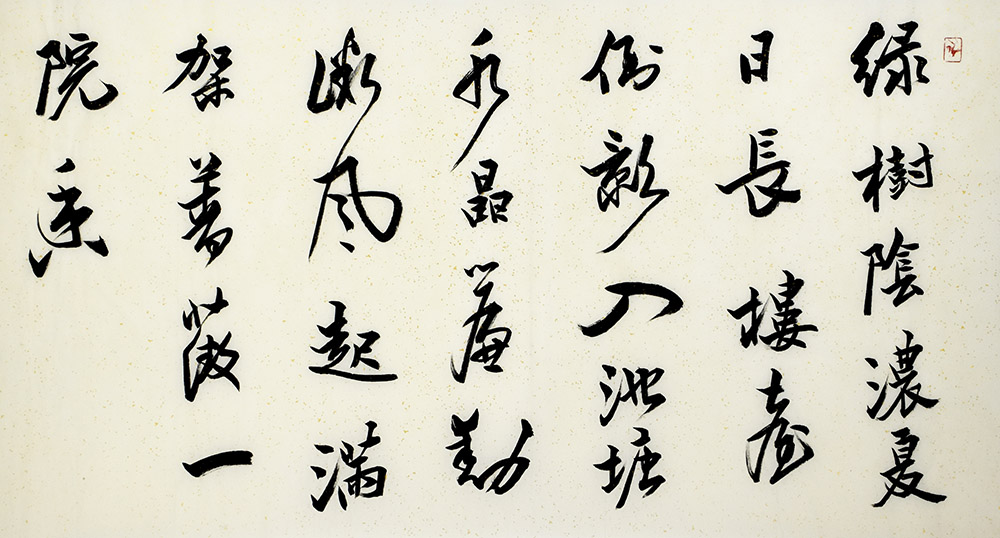 緑樹陰濃夏
日長樓臺
倒影入池塘
水晶簾動
微風起滿
架薔薇一
院香